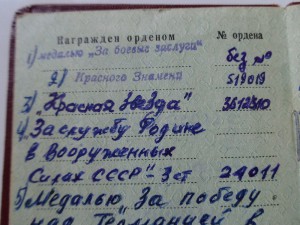 Награжден орденом № ордена
1) медалью „За боевые заслуги" без №
2) Красного Знамени 519019
3) „Красная звезда" 3612310
4) За службу Родине
в вооруженных
Силах СССР"- 3 ст 24011
5) Медалью „За победу
над Германией в